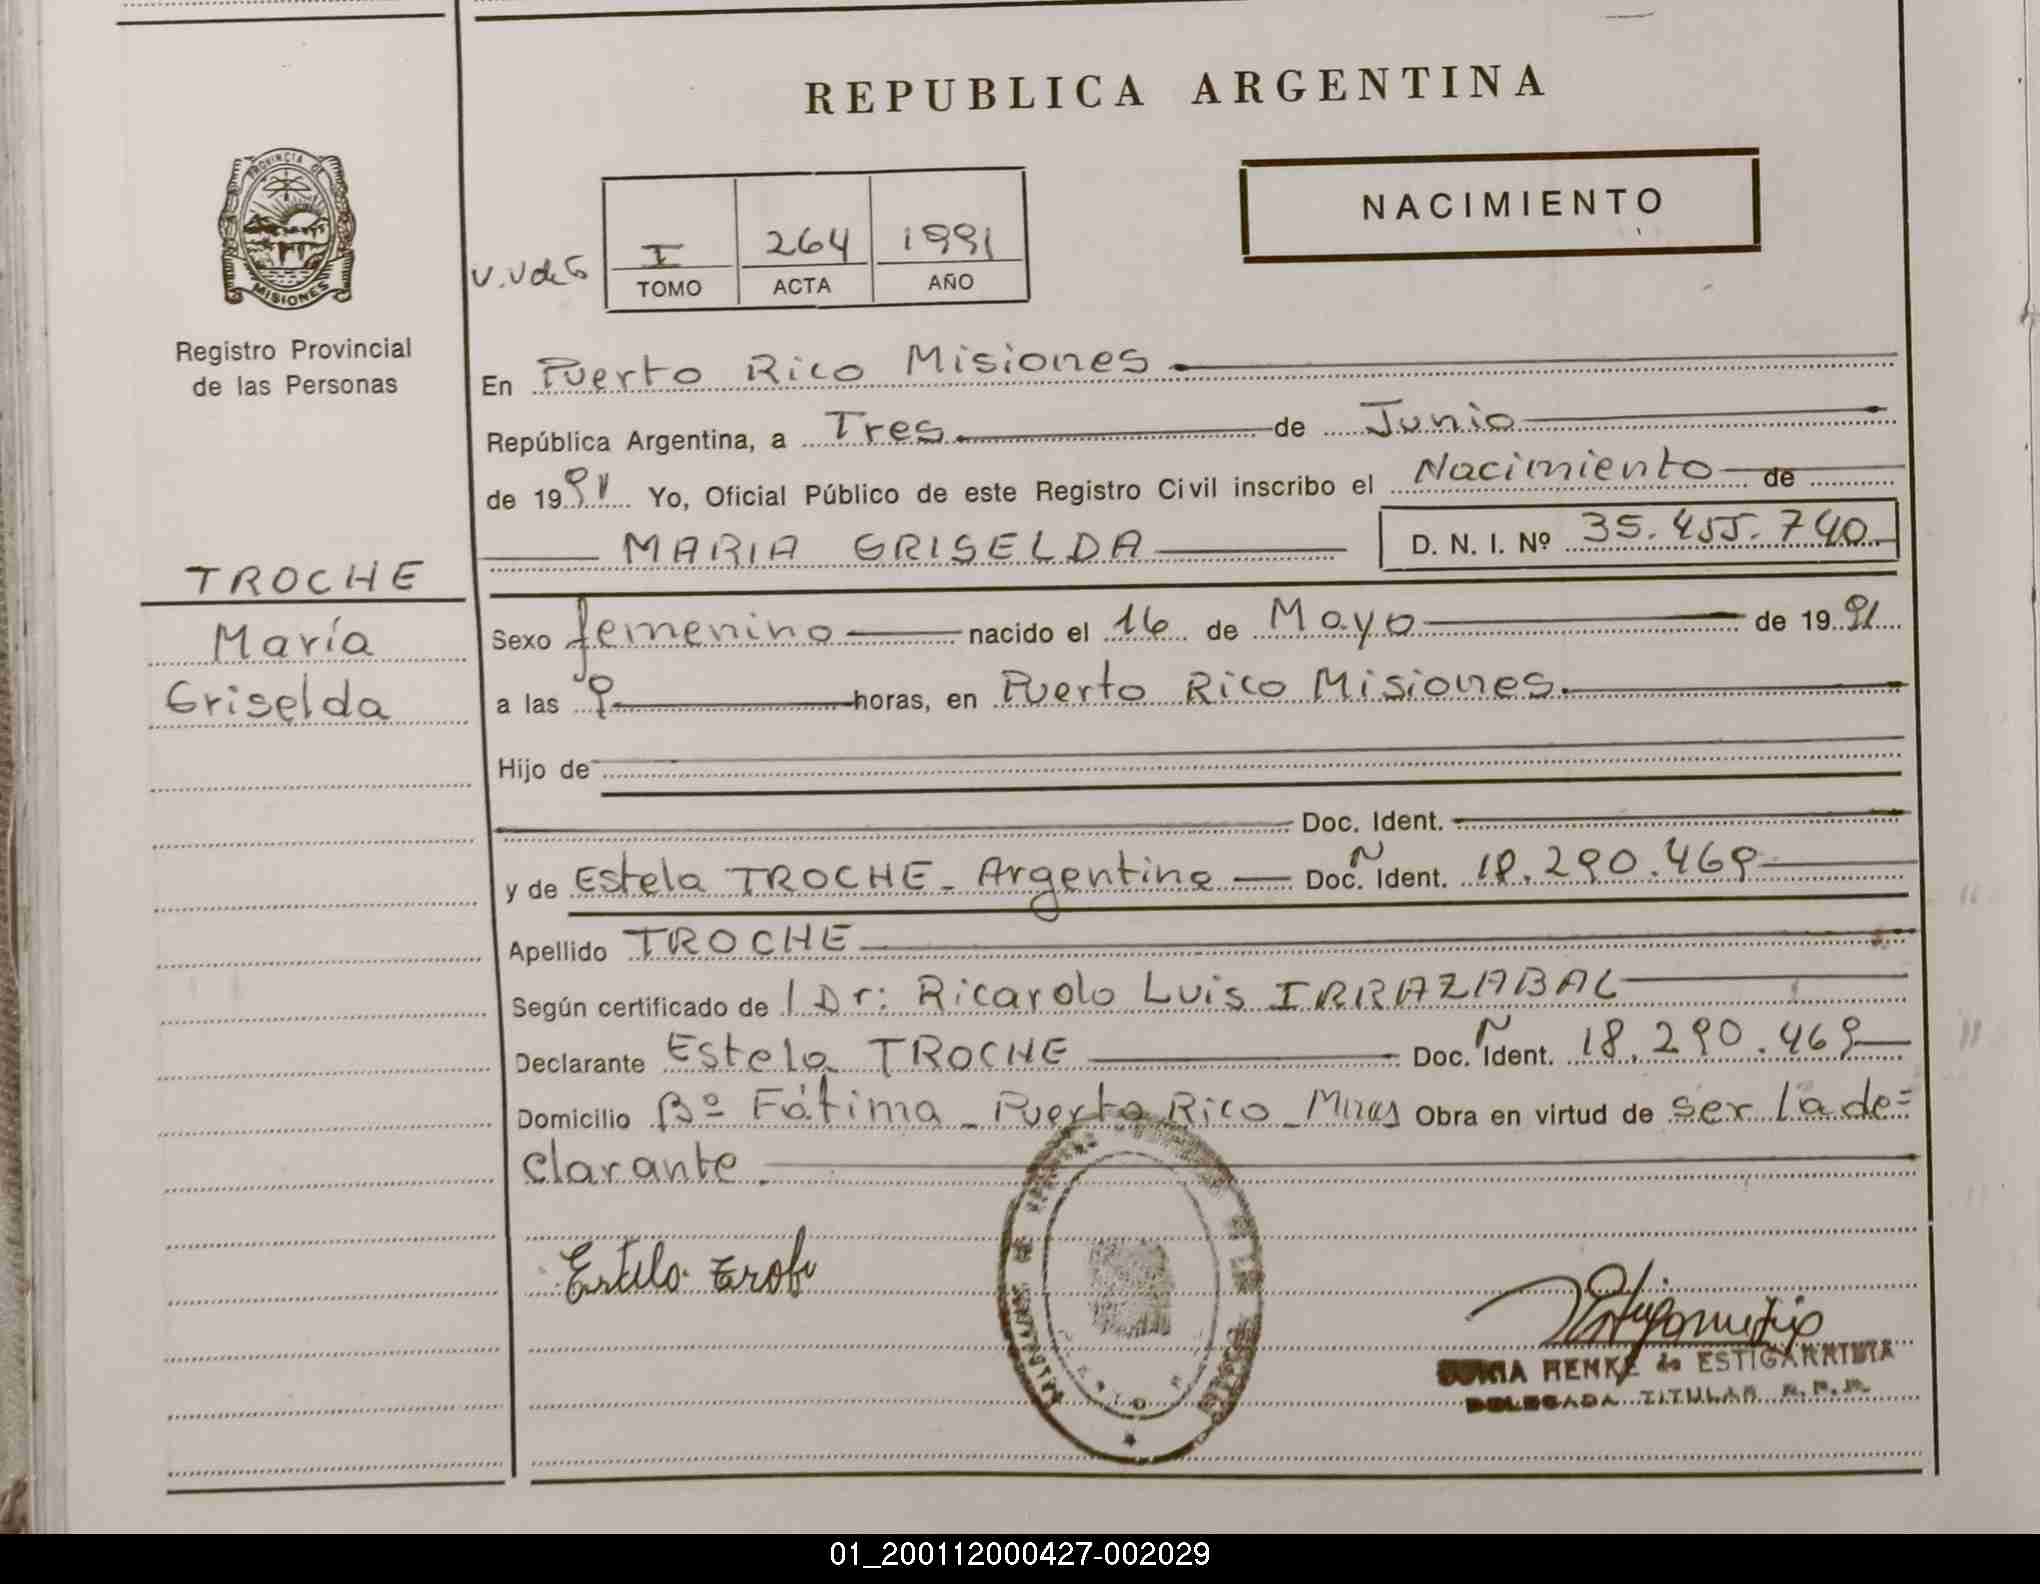 REPUBLICA ARGENTINA
NACIMIENTO
PROVINCIA DE
MISIONES
Registro Provincial
de las Personas
I 264 1991
TOMO ACTA AÑO
En Puerto Rico Misiones
República Argentina, a Tres de Junio
de 1991 Yo, Oficial Público de este Registro Civil inscribo el Nacimiento de
MARIA GRISELDA D. N. I. Nº 35.455.740
TROCHE
María
Griselda
Sexo femenino nacido el 16 de Mayo de 1991
a las 9 horas, en Puerto Rico Misiones.
Hijo de
Doc. Ident.
y de Estela TROCHE - Argentina Doc. Ident. 18.290.469
Apellido TROCHE
Según certificado de l Dr: Ricardo Luis IRRAZABAL
Declarante Estela TROCHE Doc. Ident. 18.290.469
Domicilio Bº Fátima - Puerto Rico - Mnes Obra en virtud de ser la de=
clarante.
HENKE de ESTIGARRIBIA
DELEGADA TITULAR R.P.P.
01_200112000427-002029